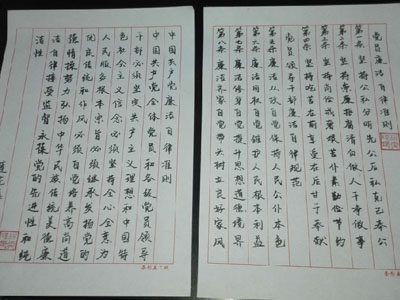 中国共产党廉洁自律准则
中国共产党全体党员和各级党员领导
干部必须坚定共产主义理想和中国特
色社会主义信念必须坚持全心全意为
人民服务根本宗旨必须继承发扬党的
优良传统和作风必须自觉培养高尚道
德情操努力弘扬中华民族传统美德廉
洁自律接受监督永葆党的先进性和纯
洁性
党员廉洁自律准则
第一条 坚持公私分明先公后私克己奉公
第二条 坚持崇廉拒腐清白做人干净做事
第三条 坚持尚俭戒奢艰苦朴素勤俭节约
第四条 坚持吃苦在前享受在后甘于奉献
党员领导干部廉洁自律规范
第五条 廉洁从政自觉保持人民公仆本色
第六条 廉洁用权自觉维护人民根本利益
第七条 廉洁修身自觉提升思想道德境界
第八条 廉洁齐家自觉带头树立良好家风